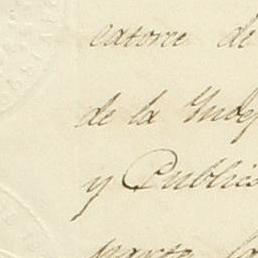 catorce de
de la Indep
y Public